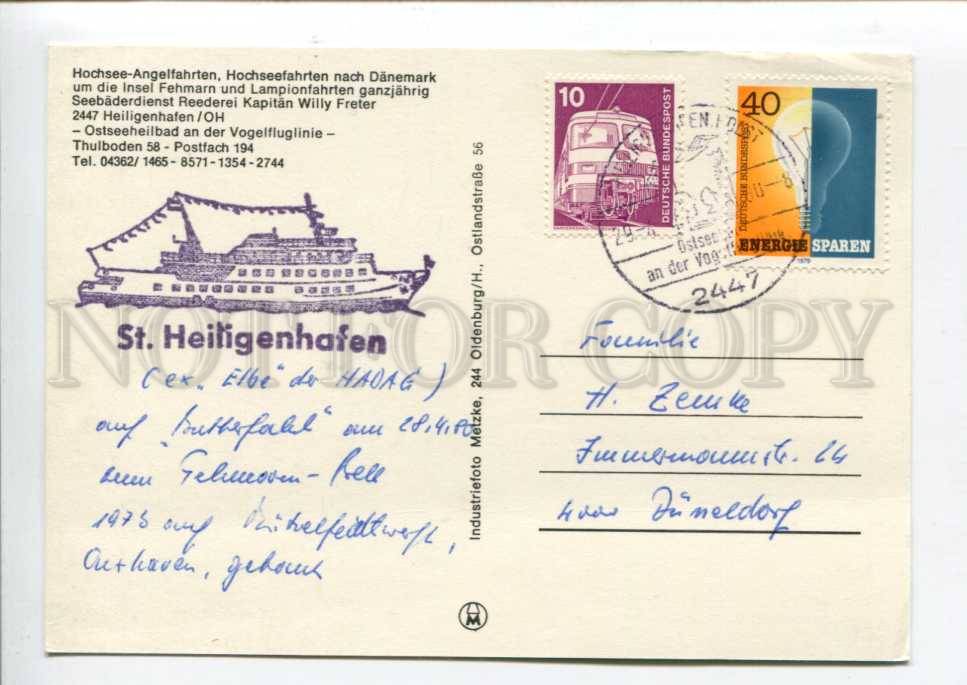 Hochsee-Angelfahrten, Hochseefahrten nach Dänemark
um die Insel Fehmarn und Lampionfahrten ganzjährig
Seebäderdienst Reederei Kapitän Willy Freter
2447 Heiligenhafen/OH
– Ostseeheilbad an der Vogelfluglinie –
Thulboden 58 - Postfach 194
Tel. 04362/1465 - 8571 - 1354 - 2744
St. Heiligenhafen
(ex „Elbe" der HADAG)
auf „Butterfahrt" am 28.4.80
zum Fehmarn-Belt
1973 auf
Cuxhaven, gebaut
Industriefoto Metzke, 244 Oldenburg/H., Ostlandstraße 56
10
DEUTSCHE BUNDESPOST
40
DEUTSCHE BUNDESPOST
ENERGIE SPAREN
1979
an der
2447
Familie
H. Zemke
Zimmermannstr.
4000 Düsseldorf
M
NOT FOR COPY